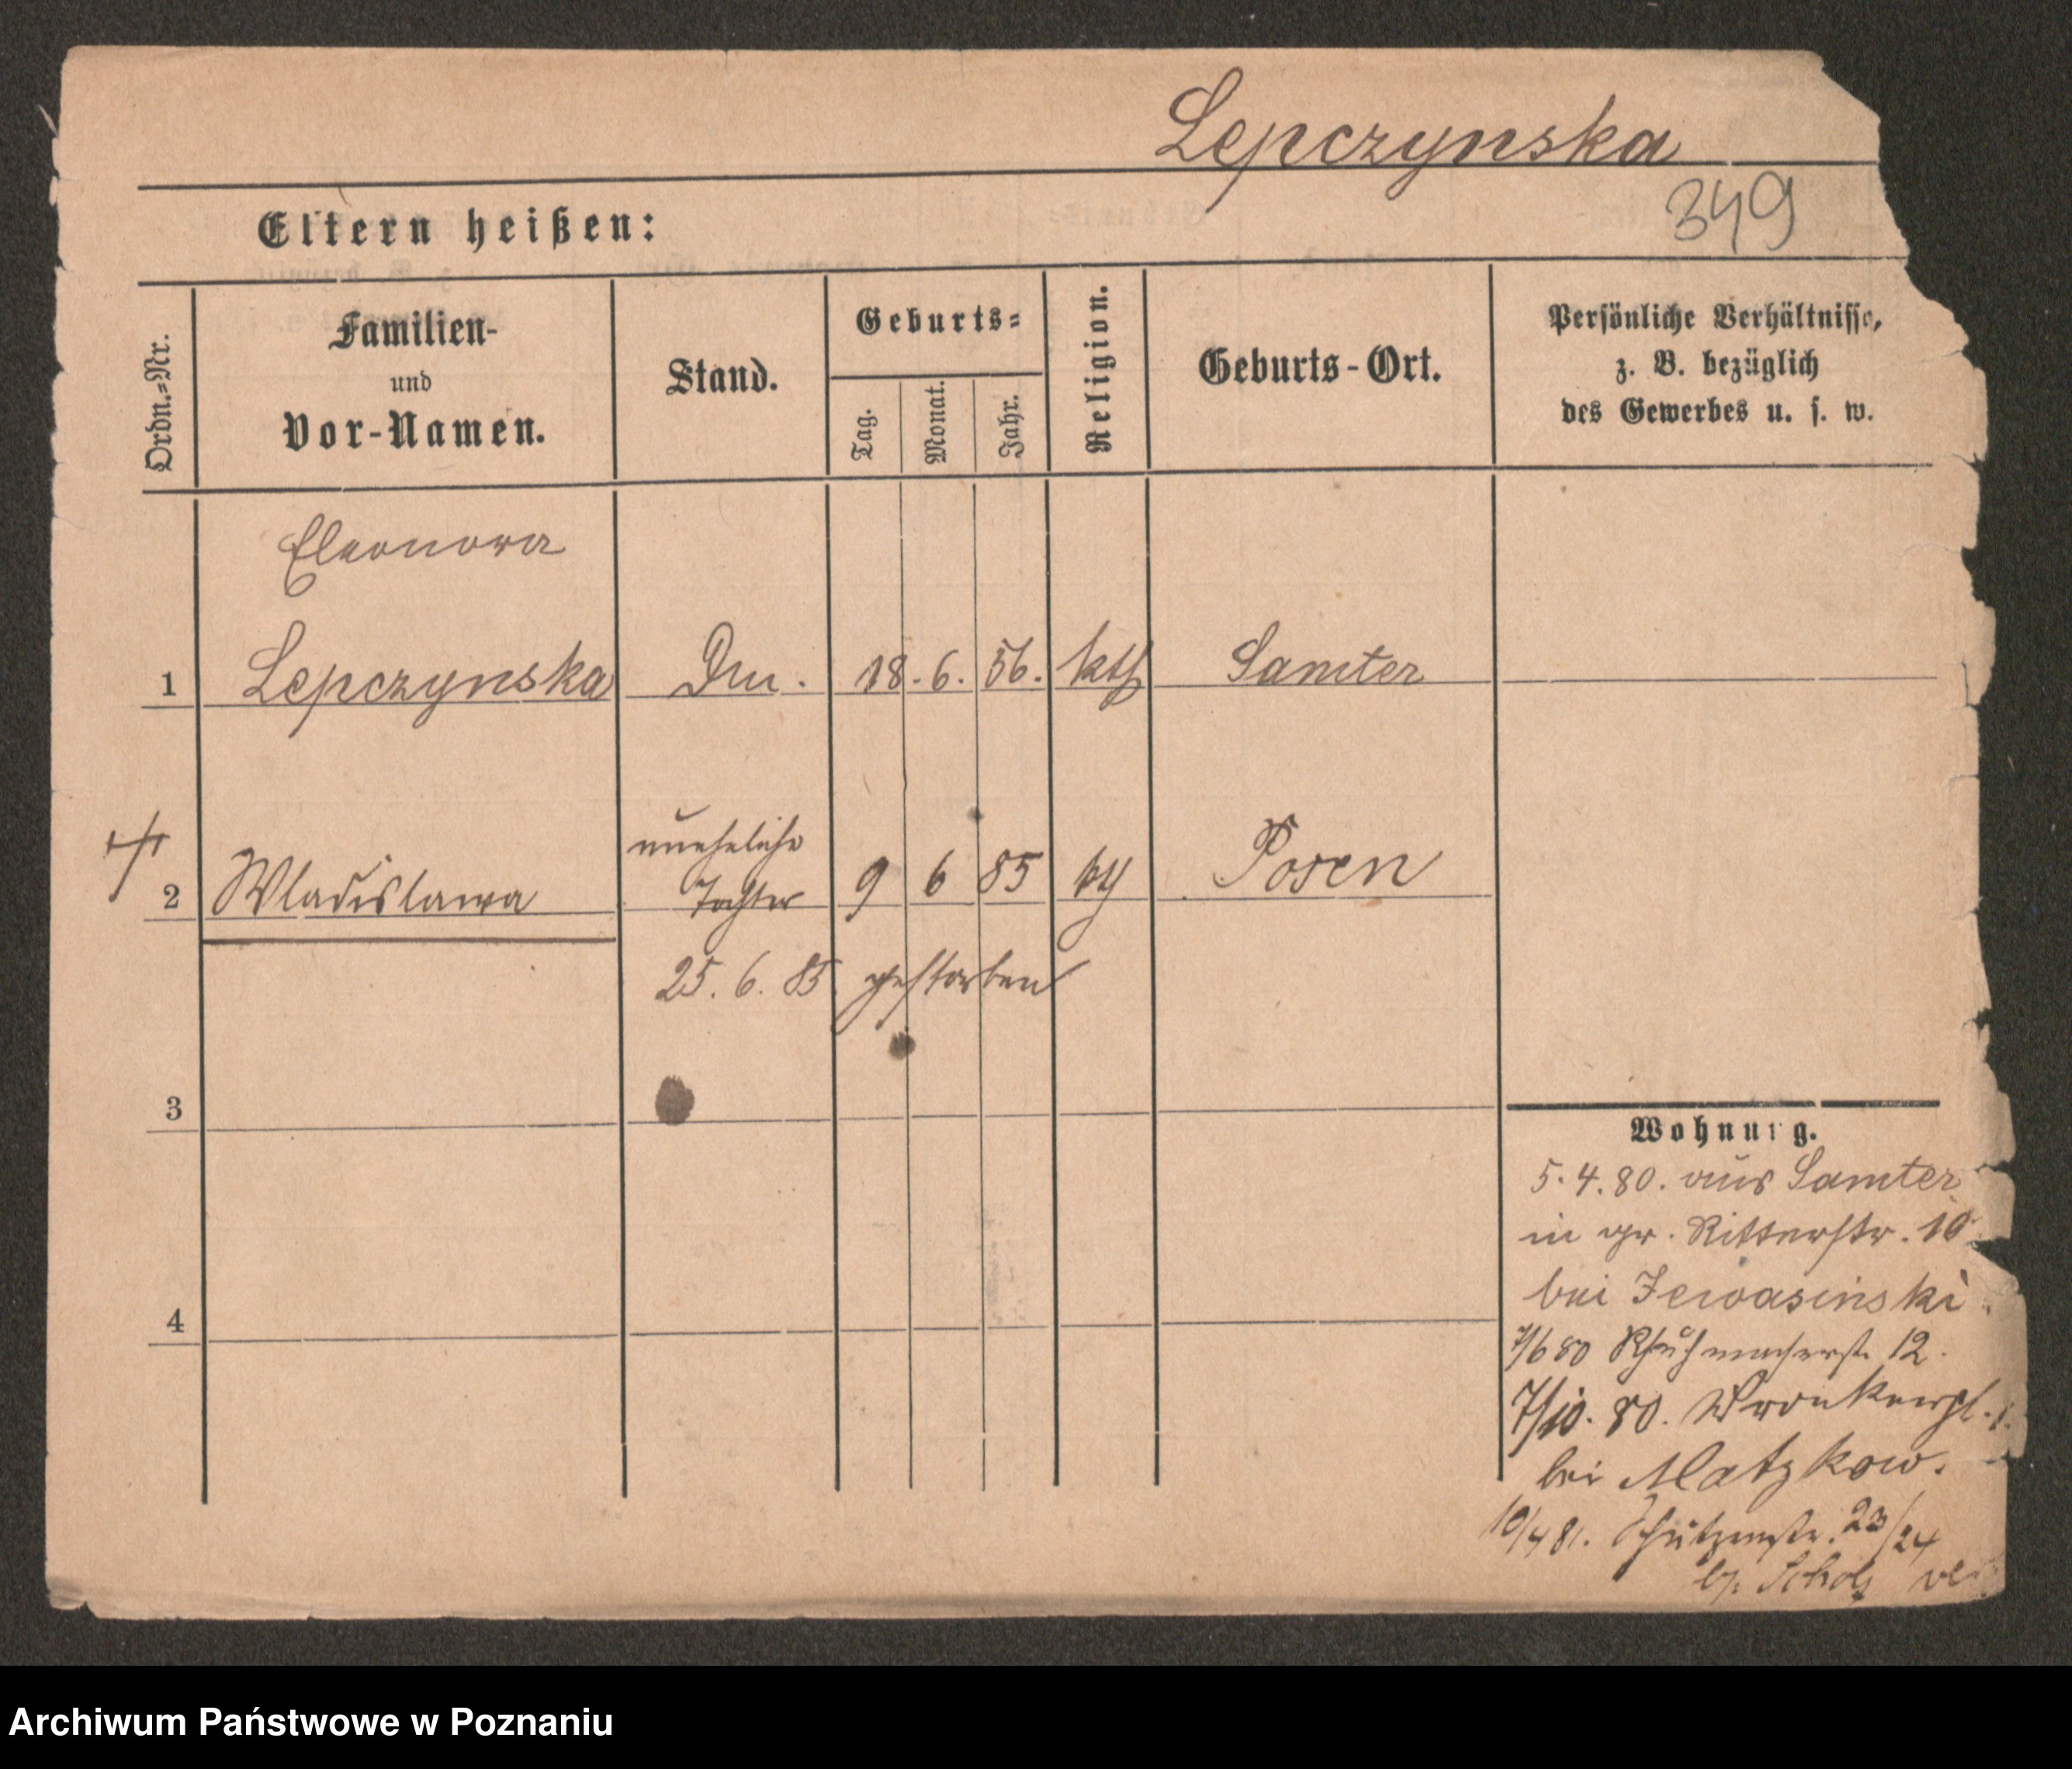 Lepczynska
349
Eltern heißen:
Ordn.=Nr.
Familien-
und
Vor-Namen.
Stand.
Geburts=
Tag.
Monat.
Jahr.
Religion.
Geburts-Ort.
Persönliche Verhältnisse,
z. B. bezüglich
des Gewerbes u. s. w.
Eleonora
1 Lepczynska Dm. 18. 6. 56. kth Samter
uneheliche
2 Wladislawa Tochter 9 6 85 kth Posen
25. 6. 85. gestorben
3
4
Wohnung.
5. 4. 80. aus Samter
in gr. Ritterstr. 10
bei
7/6 80 Schuhmacherstr. 12.
7/10. 80. Wronkerpl.
bei Matzkow.
10/4 81. Schützenstr. 23/24
b. Scholz
Archiwum Państwowe w Poznaniu